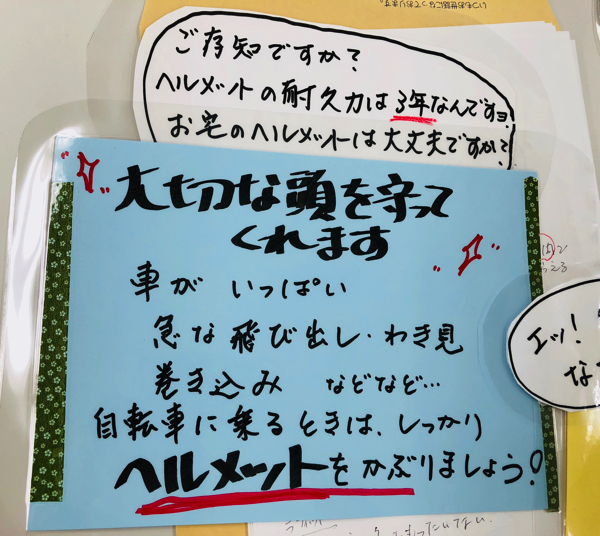 いつもお世話になっております。"
ご存知ですか?
ヘルメットの耐久力は3年なんですョ
お宅のヘルメットは大丈夫ですか?
大切な頭を守って
くれます
車が いっぱい
急な飛び出し・わき見
巻き込み などなど…
自転車に乗るときは、しっかり
ヘルメットをかぶりましょう!
エッ!
な
もったいない。